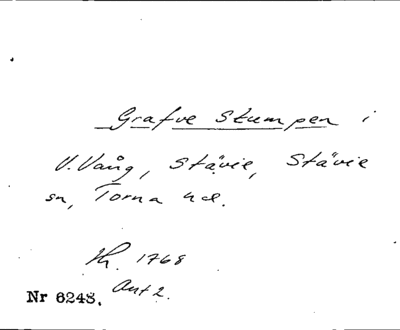 Grafve Stumpen i
V. Vång, Stävie, Stävie
sn, Torna hd.
Kh. 1768
Ant 2.
Nr 6248.